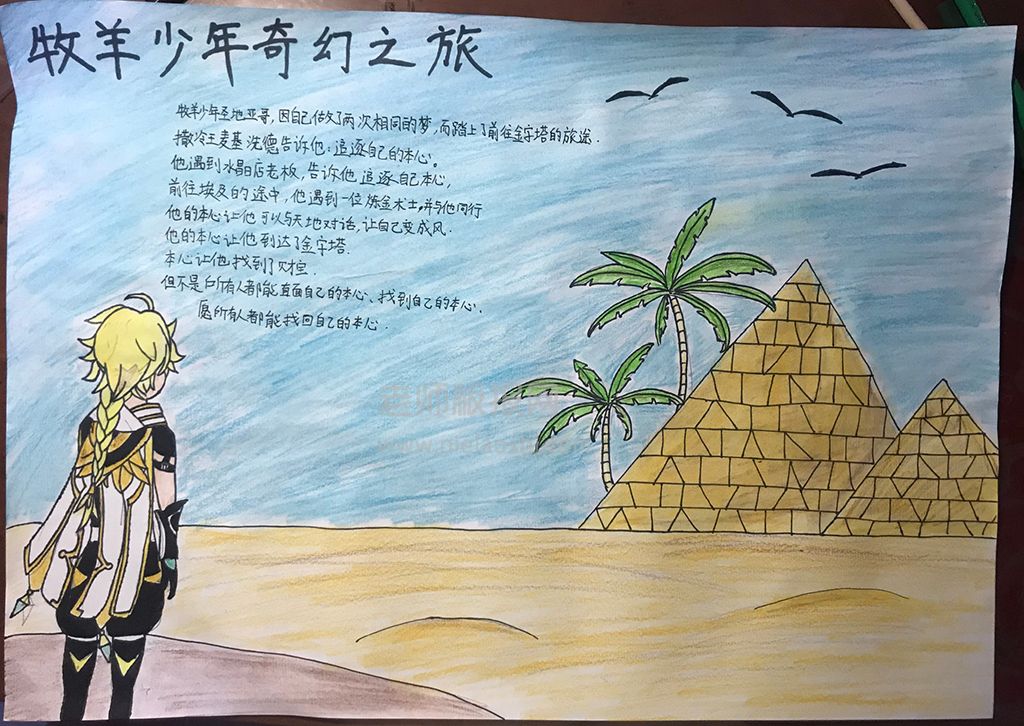 牧羊少年奇幻之旅
牧羊少年圣地亚哥，因自己做了两次相同的梦，而踏上了前往金字塔的旅途．
撒冷王麦基洗德告诉他：追逐自己的本心。
他遇到水晶店老板，告诉他追逐自己本心，
前往埃及的途中，他遇到一位炼金术士，并与他同行
他的本心让他可以与天地对话，让自己变成风．
他的本心让他到达了金字塔．
本心让他找到了财宝．
但不是所有人都能直面自己的本心、找到自己的本心．
愿所有人都能找回自己的本心．